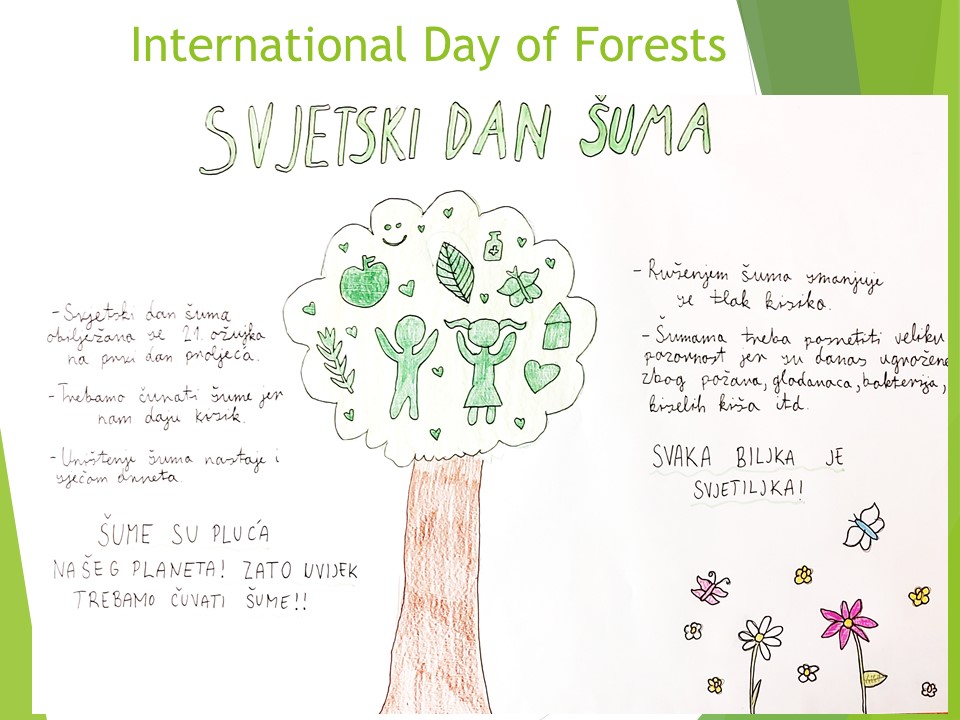 International Day of Forests
SVJETSKI DAN ŠUMA
- Svjetski dan šuma
obilježava se 21. ožujka
na prvi dan proljeća.
- Trebamo čuvati šume jer
nam daju kisik.
- Uništenje šuma nastaje i
sječom drveta.
ŠUME SU PLUĆA
NAŠEG PLANETA! ZATO UVIJEK
TREBAMO ČUVATI ŠUME!!
- Rušenjem šuma smanjuje
se tlak kisika.
- Šumama treba posvetiti veliku
pozornost jer su danas ugrožene
zbog požara, glodavaca, bakterija,
kiselih kiša itd.
SVAKA BILJKA JE
SVJETILJKA!